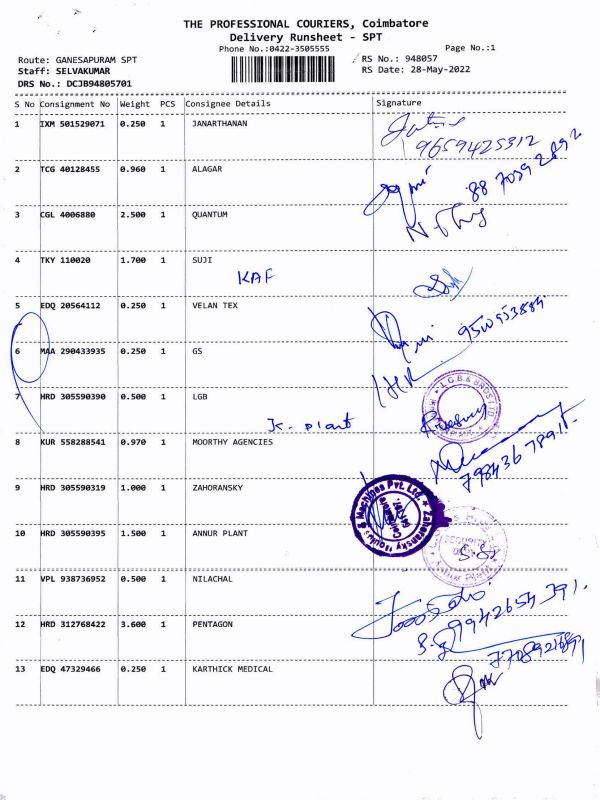 THE PROFESSIONAL COURIERS, Coimbatore
Delivery Runsheet - SPT
Phone No.:0422-3505555
Page No.:1
Route: GANESAPURAM SPT
RS No.: 948057
Staff: SELVAKUMAR
RS Date: 28-May-2022
DRS No.: DCJB94805701
S No Consignment No Weight PCS Consignee Details Signature
1 IXM 501529071 0.250 1 JANARTHANAN
9659425312
2 TCG 40128455 0.960 1 ALAGAR
3 CGL 4006880 2.500 1 QUANTUM
4 TKY 110020 1.700 1 SUJI
KAF
5 EDQ 20564112 0.250 1 VELAN TEX
6 MAA 290433935 0.250 1 GS
7 HRD 305590390 0.500 1 LGB
L.G.B & BROS LTD
K. Plant
8 KUR 558288541 0.970 1 MOORTHY AGENCIES
9 HRD 305590319 1.000 1 ZAHORANSKY
Zahoransky Moulds & Machines Pvt. Ltd.
10 HRD 305590395 1.500 1 ANNUR PLANT
11 VPL 938736952 0.500 1 NILACHAL
12 HRD 312768422 3.600 1 PENTAGON
13 EDQ 47329466 0.250 1 KARTHICK MEDICAL